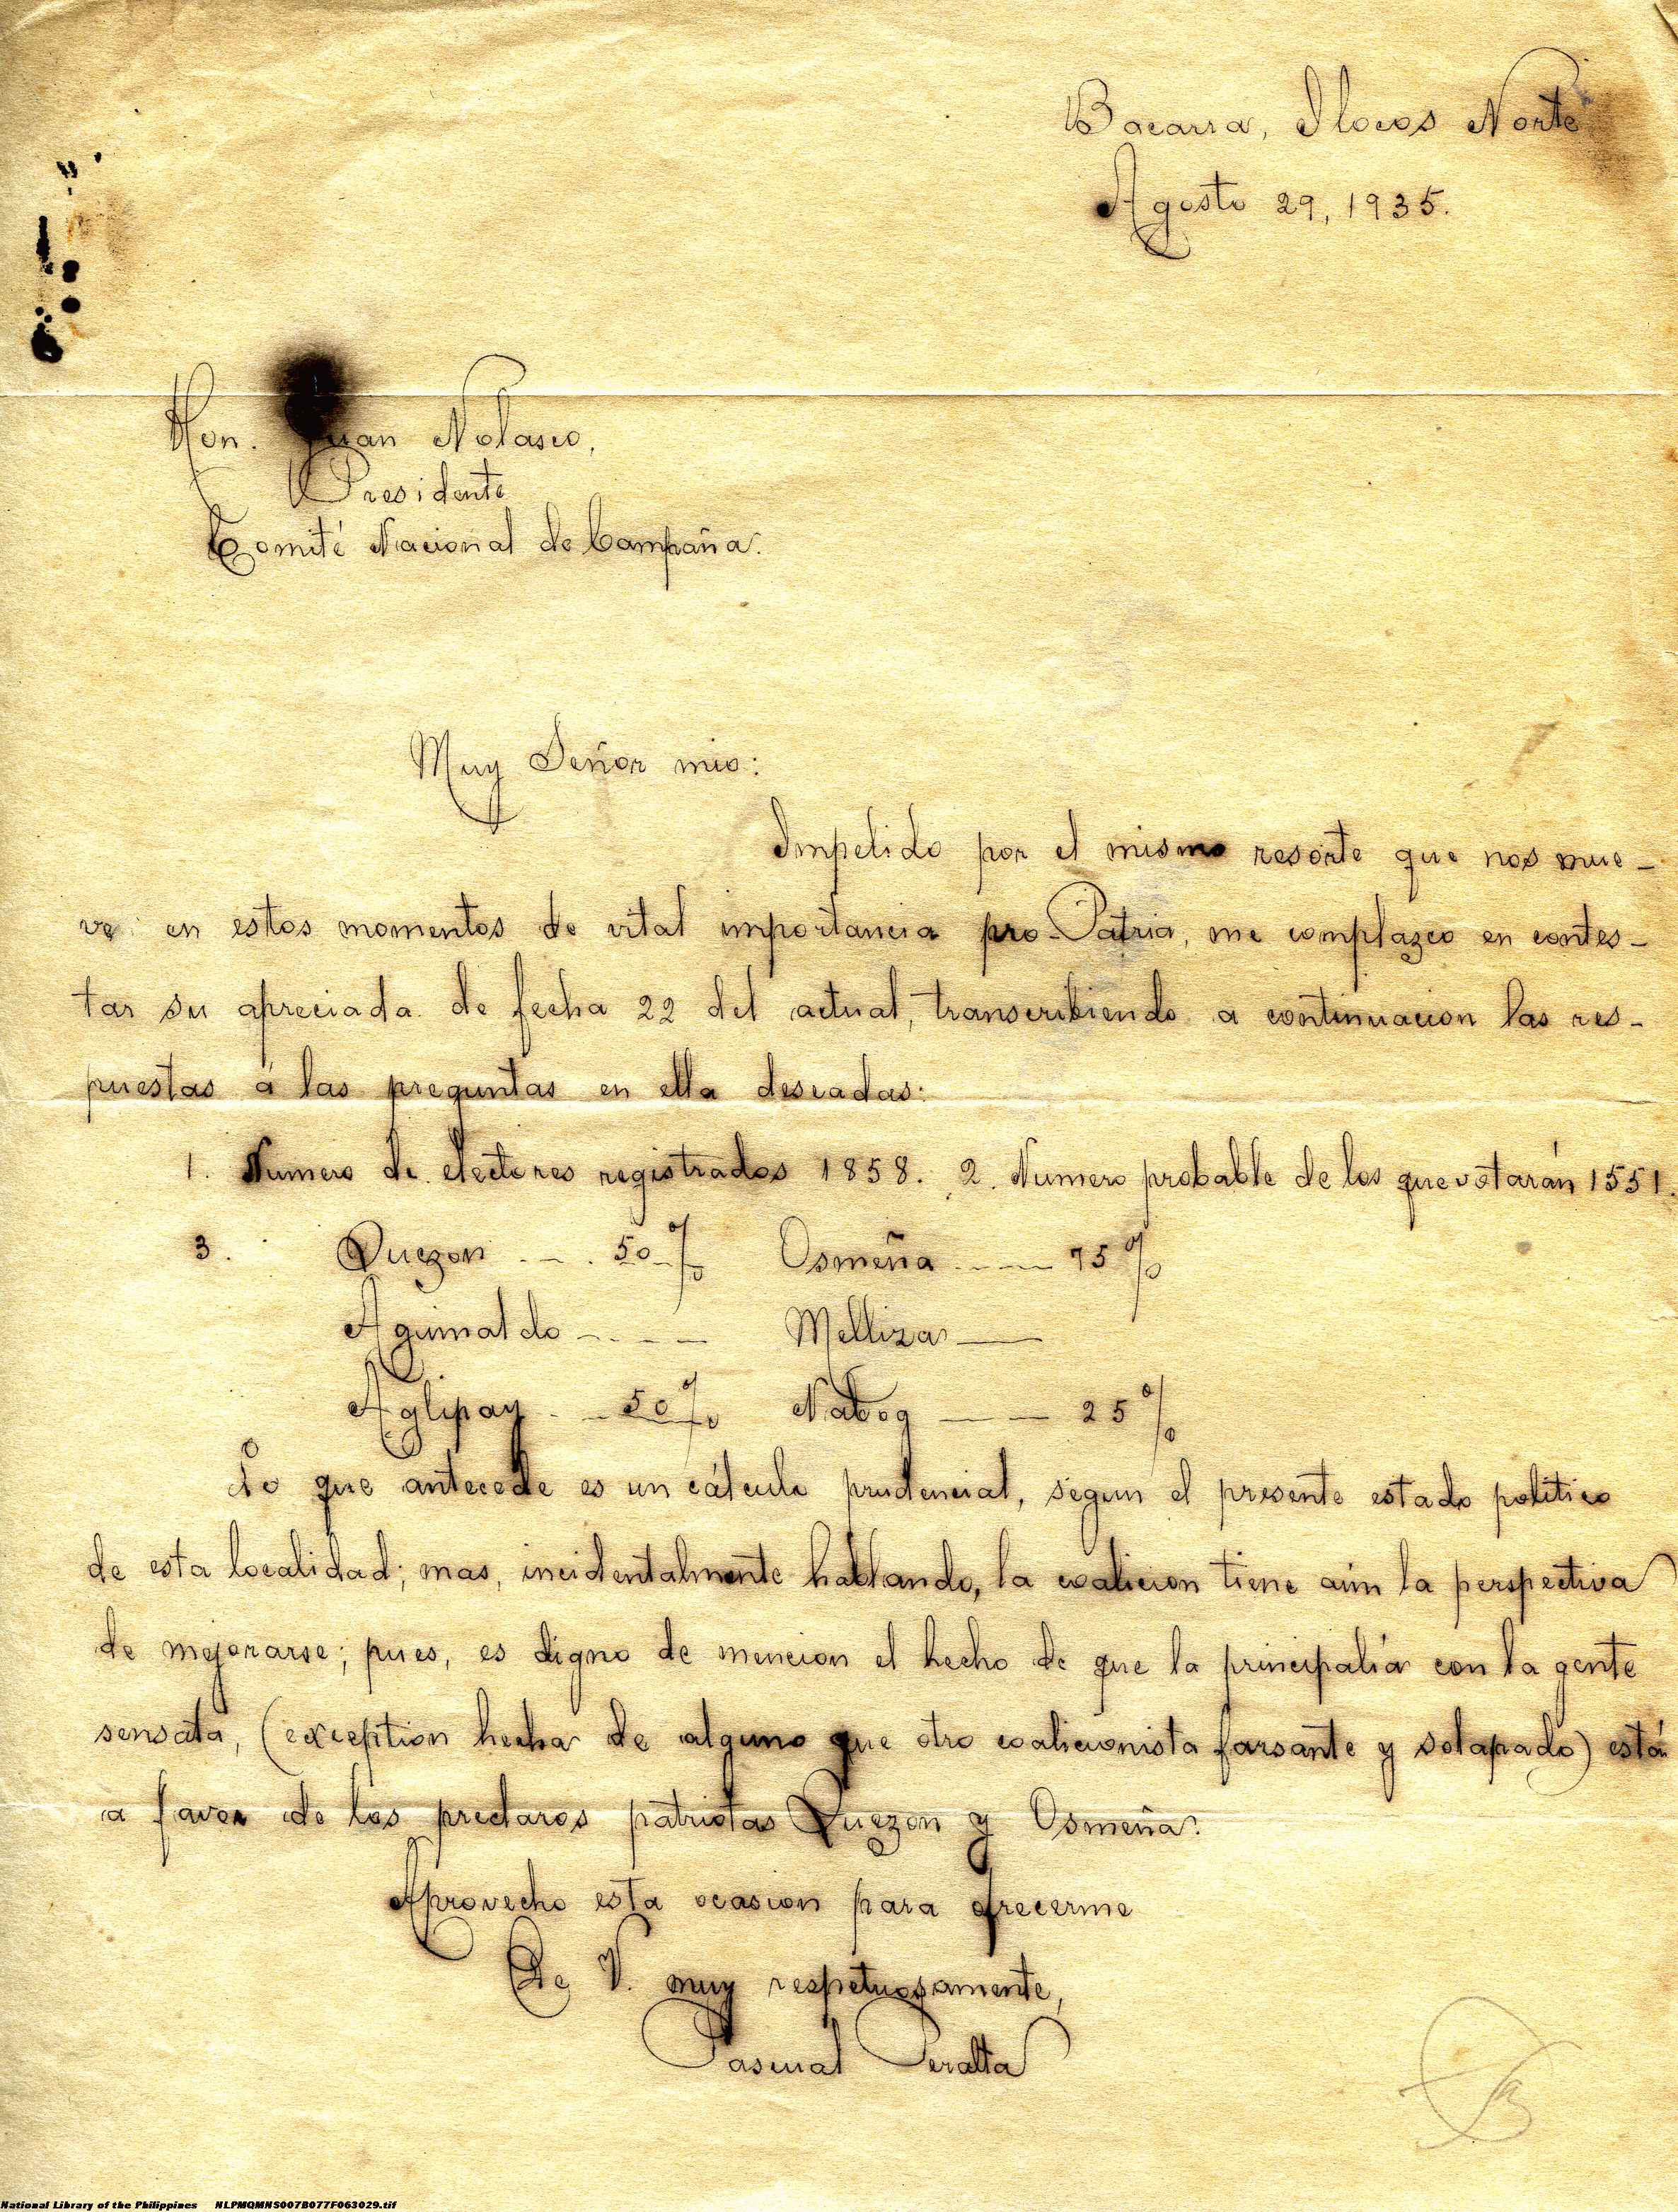 Bacarra, Ilocos Norte
Agosto 29, 1935.
Hon. Juan Nolasco,
Presidente
Comité Nacional de Campaña.
Muy Señor mio:
Impelido por el mismo resorte que nos mue-
ve en estos momentos de vital importancia pro-Patria, me complazco en contes-
tar su apreciada de fecha 22 del actual, transcribiendo a continuacion las res-
puestas á las preguntas en ella deseadas:
1. Numero de electores registrados 1858. 2. Numero probable de los que votarán 1551.
3. Quezon - - - 50% Osmeña - - - - 75%
Aguinaldo - - - - Melliza ——
Aglipay - - 50% Nabog —— 25%
Lo que antecede es un cálculo prudencial, segun el presente estado politico
de esta localidad; mas, incidentalmente hablando, la coalicion tiene aún la perspectiva
de mejorarse; pues, es digno de mencion el hecho de que la principalia con la gente
sensata, (exception hecha de alguno que otro coalicionista farsante y solapado) está
a favor de los preclaros patriotas Quezon y Osmeña.
Aprovecho esta ocasion para ofrecerme
De V. muy respetuosamente,
Pascual Peralta
National Library of the Philippines NLPMQMNS007B077F063029.tif